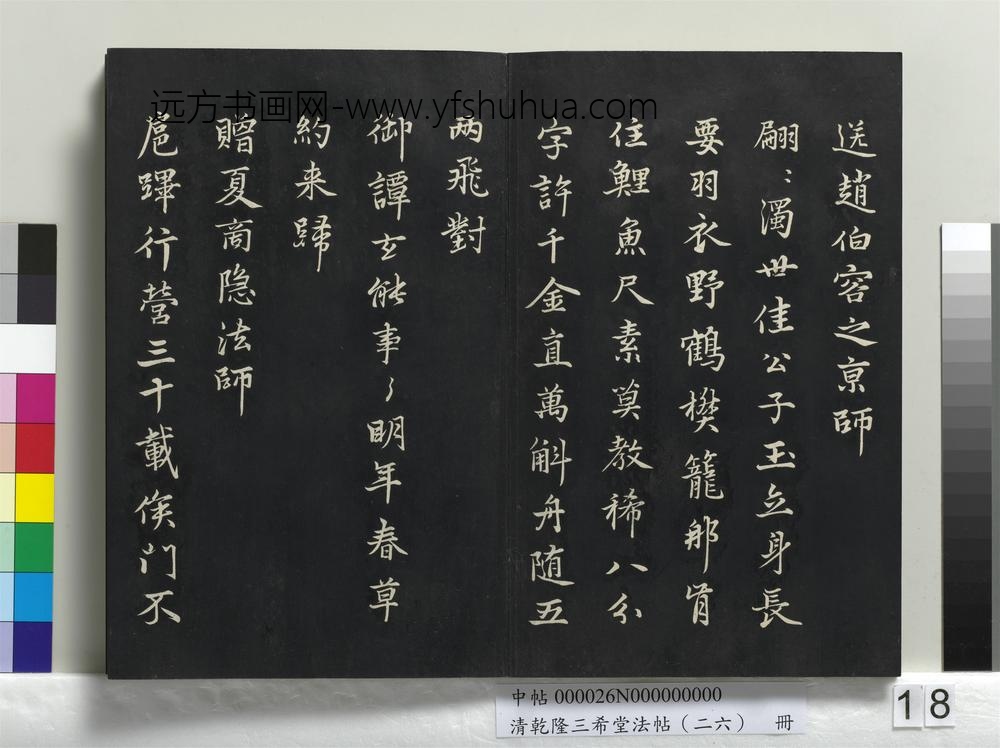 远方书画网-www.yfshuhua.com
送趙伯容之京師
翩〻濁世佳公子玉立身長
要羽衣野鶴樊籠那肯
住鯉魚尺素莫教稀八分
字許千金直萬斛舟随五
两飛對
御譚玄能事了明年春草
約来歸
贈夏商隐法師
扈蹕行營三十載侯門不
中帖 000026N000000000
清乾隆三希堂法帖（二六） 冊
18